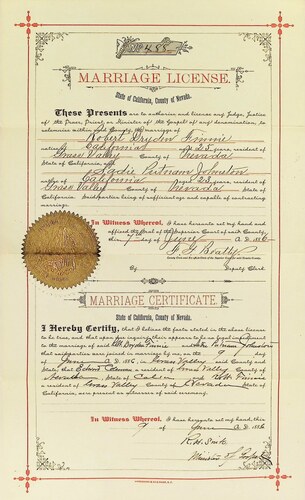 No 488
MARRIAGE LICENSE.
State of California, County of Nevada.
These Presents are to authorize and license any Judge, Justice
of the Peace, Priest or Minister of the Gospel of any denomination, to
solemnize within said County the marriage of
Robert Drydon
native of California, aged 25 years, resident of
Grass Valley County of Nevada
Sadie Johnston
native of California aged 23 years, resident of
Grass Valley County of Nevada
State of California. Said parties being of sufficient age and capable of contracting
marriage.
In Witness Whereof, I have hereunto set my hand and
affixed the Seal of the Superior Court of said County
this 7 day of June A.D. 1886
F. G. Beatty
County Clerk
By Deputy Clerk
MARRIAGE CERTIFICATE.
State of California, County of Nevada.
I Hereby Certify, that I believe the facts stated in the above license
to be true, and that upon due inquiry there appears to be no legal impediment
to the marriage of said and Johnston
that said parties were joined in marriage by me, on the 9 day
of June A.D. 1886, in Grass Valley said County and
State; that a resident of Grass Valley County of
Nevada State of and
a resident of Grass Valley County of Nevada State of
were present as witnesses of said ceremony.
In Witness Whereof, I have hereunto set my hand this
9 of June A.D. 1886
Minister of Gospel